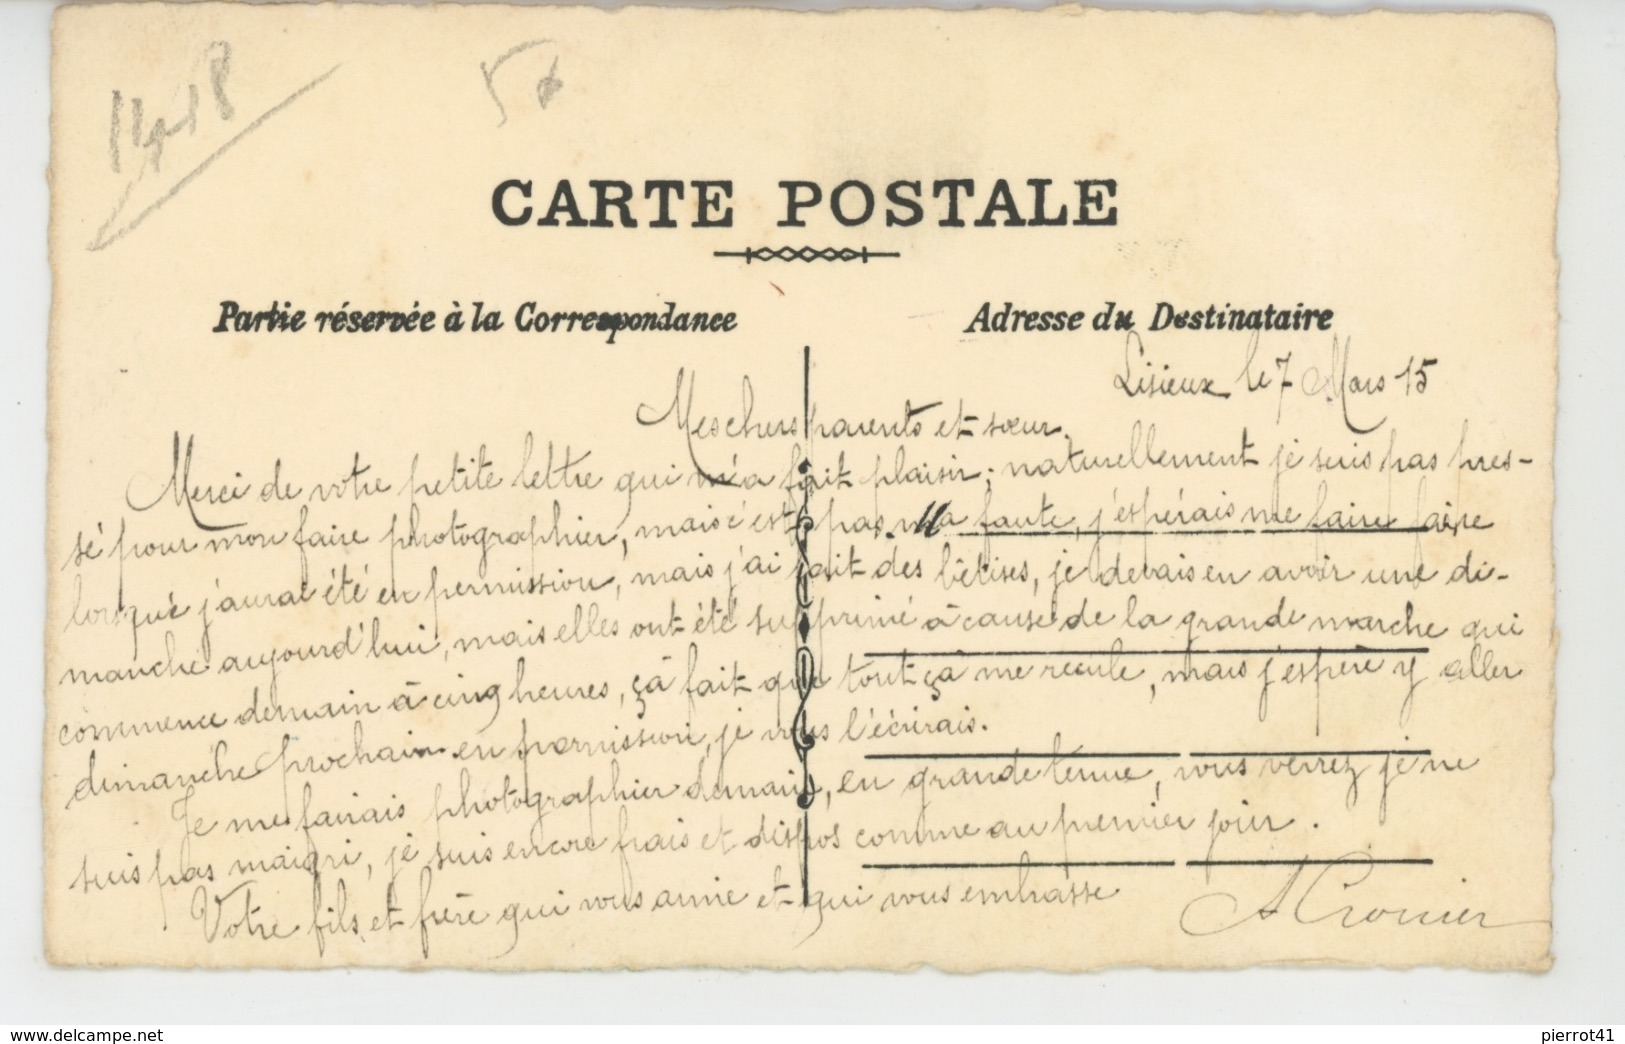 14-18
5
CARTE POSTALE
Partie réservée à la Correspondance
Adresse du Destinataire
Lisieux le 7 Mars 15
Mes chers parents et sœur.
Merci de votre petite lettre qui m'a fait plaisir; naturellement je suis pas pres-
sé pour mon faire photographier, mais c'est pas ma faute, j'espérais me faire faire
lorsque j'aurai été en permission, mais j'ai fait des bêtises, je devais en avoir une di-
manche aujourd'hui, mais elles ont été supprimé à cause de la grande marche qui
commence demain à cinq heures, çà fait que tout çà me recule, mais j'espère y aller
dimanche prochain en permission, je vous l'écrirais.
Je me fairais photographier demain, en grande tenue, vous verrez je ne
suis pas maigri, je suis encore frais et dispos comme au premier jour.
Votre fils et frère qui vous aime et qui vous embrasse
delcampe.net
pierrot41